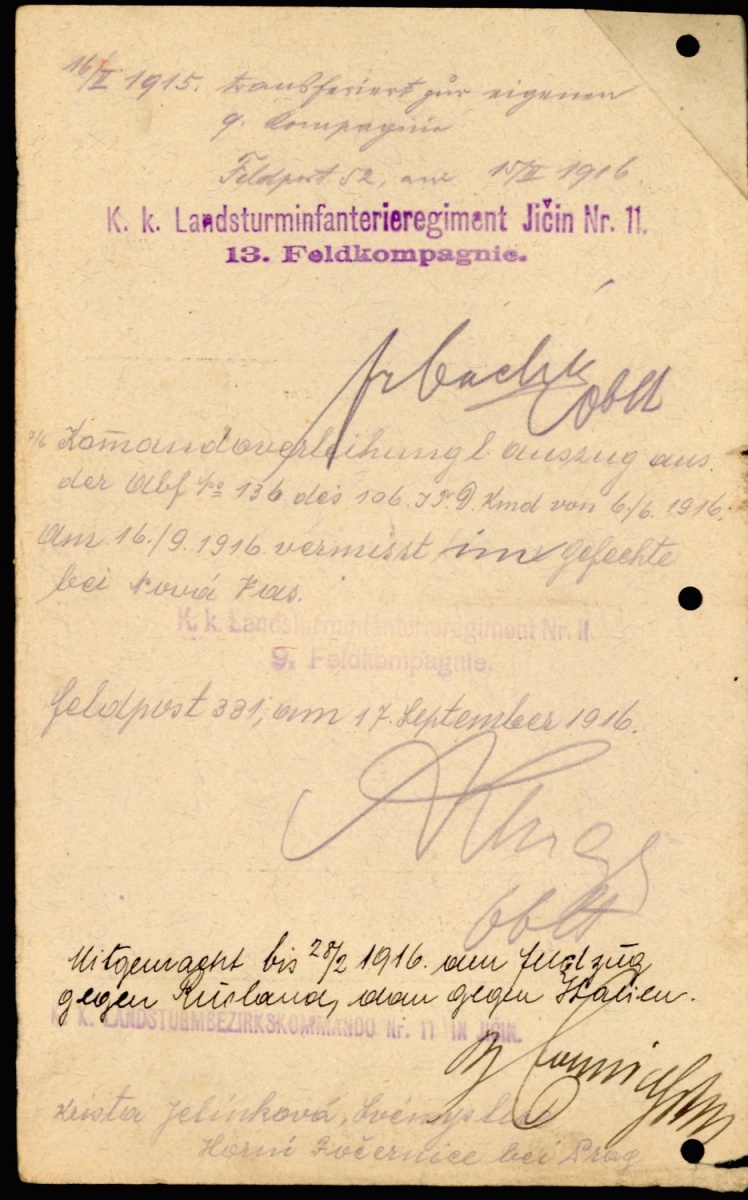 16/II 1915. transferiert zur eigenen
9. Kompagnie
Feldpost 52, am 15/II 1916.
K. k. Landsturminfanterieregiment Jičin Nr. 11.
13. Feldkompagnie.
Oblt
Komandoverleihung l. auszug aus
der Abf No 136 des 106. I. T. D. Kmd von 6./6. 1916.
Am 16./9. 1916. vermisst im Gefechte
bei Nová Vas.
K. k. Landsturminfanterieregiment Nr. 11.
9. Feldkompagnie.
Feldpost 331, am 17. September 1916.
Oblt
Mitgemacht bis 28/2 1916. den Feldzug
gegen Rusland, dan gegen Italien.
K. K. LANDSTURMBEZIRKSKOMMANDO Nr. 11 IN JIČIN.
Jelínková,
Horní Počernice bei Prag